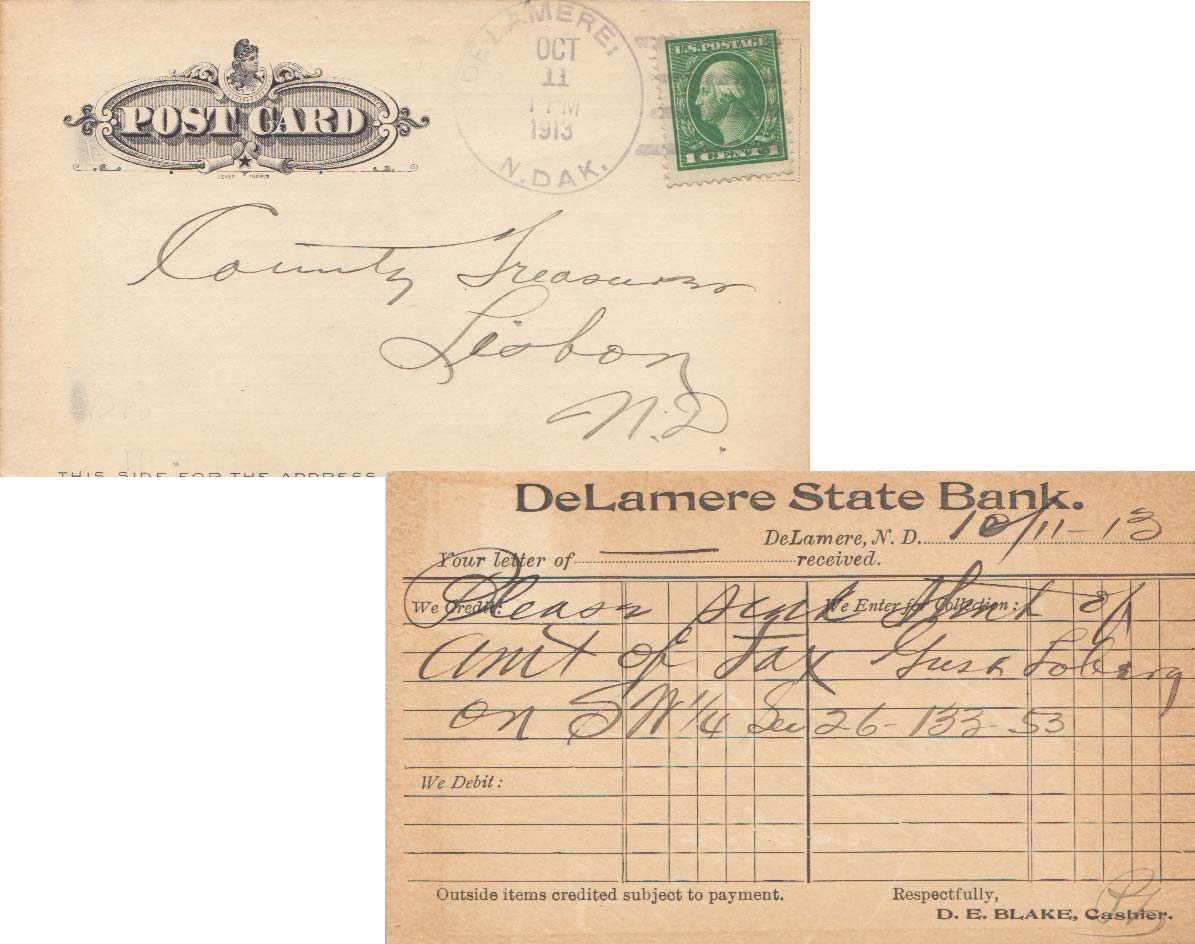 POST CARD
DE LAMERE,
OCT
11
1 PM
1913
N. DAK.
U.S. POSTAGE
1 CENT 1
County Treasurer
Lisbon
N.D.
THIS SIDE FOR THE ADDRESS
DeLamere State Bank.
DeLamere, N. D. 10/11-13
Your letter of received.
We Credit: We Enter for Collection:
Please send Stmt of
Amt of Tax Gust Loberg
on SW 1/4 Sec 26-133-53
We Debit:
Outside items credited subject to payment.
Respectfully,
D. E. BLAKE, Cashier.